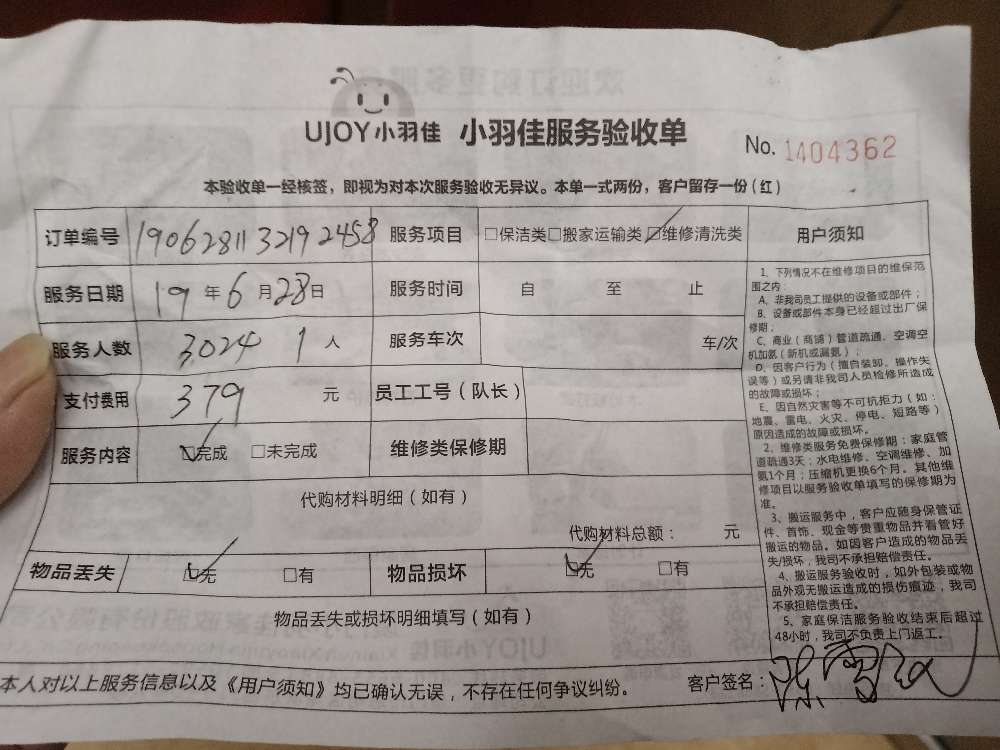 UJOY小羽佳 小羽佳服务验收单
No. 1404362
本验收单一经核签，即视为对本次服务验收无异议。本单一式两份，客户留存一份(红)
订单编号 190628113219 2458 服务项目 □保洁类□搬家运输类☑维修清洗类
服务日期 19 年 6 月 28 日 服务时间 自 至 止
服务人数 3024 1 人 服务车次 车/次
支付费用 379 元 员工工号（队长）
服务内容 ☑完成 □未完成 维修类保修期
代购材料明细（如有）
代购材料总额： 元
物品丢失 ☑无 □有 物品损坏 ☑无 □有
物品丢失或损坏明细填写（如有）
用户须知
1、下列情况不在维修项目的维保范
围之内：
A、非我司员工提供的设备或部件；
B、设备或部件本身已经超过出厂保
修期；
C、商业（商铺）管道疏通、空调空
机加氨（新机或漏氨）；
D、因客户行为（擅自装卸、操作失
误等）或另请非我司人员检修所造成
的故障或损坏；
E、因自然灾害等不可抗拒力（如：
地震、雷电、火灾、停电、短路等）
原因造成的故障或损坏。
2、维修类服务免费保修期：家庭管
道疏通3天；水电维修、空调维修、加
氨1个月；压缩机更换6个月。其他维
修项目以服务验收单填写的保修期为
准。
3、搬运服务中，客户应随身保管证
件、首饰、现金等贵重物品并看管好
搬运的物品。如因客户造成的物品丢
失/损坏，我司不承担赔偿责任。
4、搬运服务验收时，如外包装或物
品外观无搬运造成的损伤痕迹，我司
不承担赔偿责任。
5、家庭保洁服务验收结束后超过
48小时，我司不负责上门返工。
本人对以上服务信息以及《用户须知》均已确认无误，不存在任何争议纠纷。 客户签名：